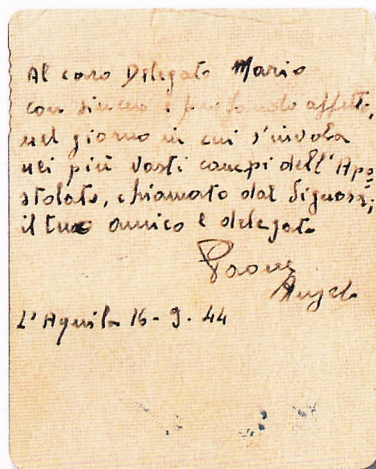 Al caro Delegato Mario
con sincero e profondo affetto,
nel giorno in cui s'invola
nei più vasti campi dell'Apo=
stolato, chiamato dal Signore;
il tuo amico e delegato
Angelo
L'Aquila 16-9-44